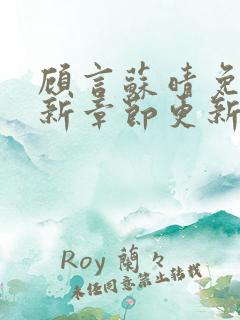 顾言蘇晴免
新章節更新
Roy 蘭々
未经同意禁止转载